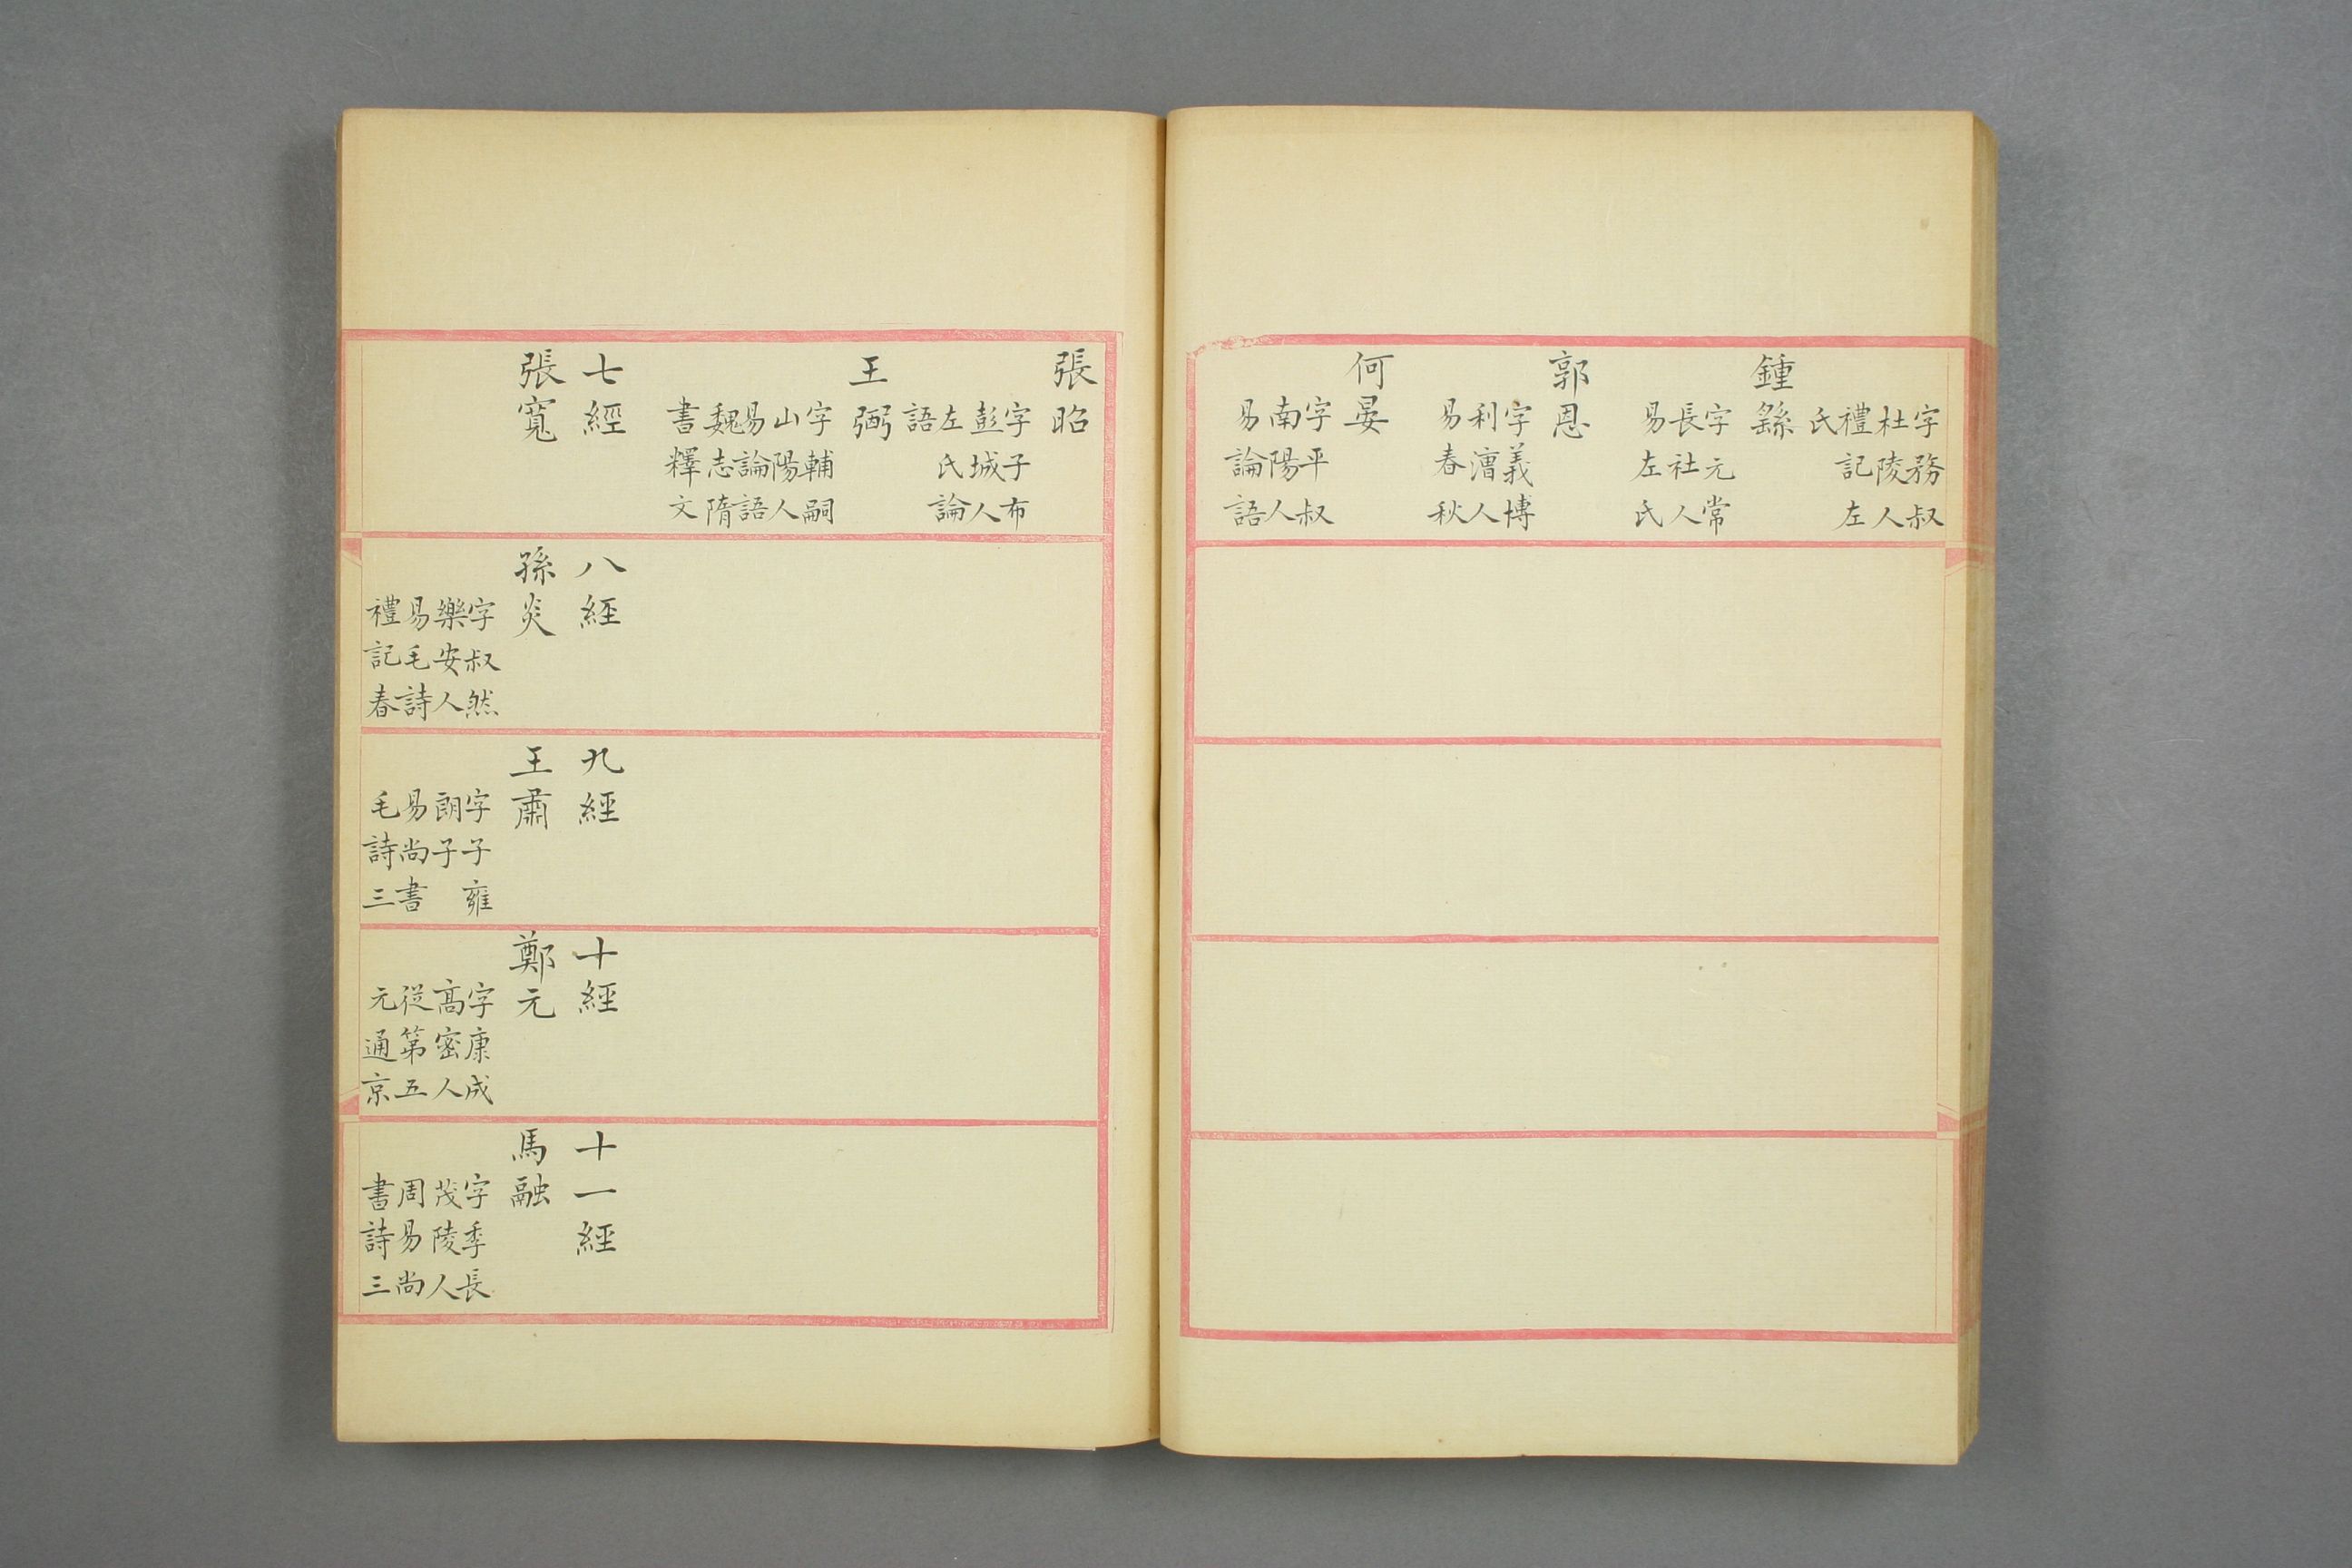 字務叔
杜陵人
禮記左
氏
鍾繇
字元常
長社人
易左氏
郭恩
字義博
利漕人
易春秋
何晏
字平叔
南陽人
易論語
張昭
字子布
彭城人
左氏論
語
王弼
字輔嗣
山陽人
易論語
魏志隋
書釋文
七經
張寬
八經
孫炎
字叔然
樂安人
易毛詩
禮記春
九經
王肅
字子雍
朗子
易尚書
毛詩三
十經
鄭元
字康成
高密人
從第五
元通京
十一經
馬融
字季長
茂陵人
周易尚
書詩三